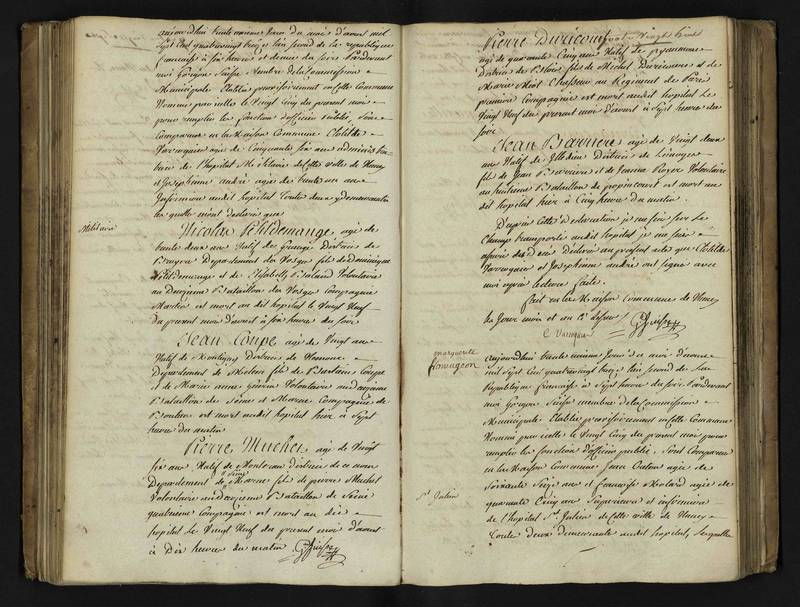 aujourdhui trente unieme Jour du mois d'aoust mil
sept cent quatrevingt treize l'an second de la republique
francaise à six heures et demie du soir Pardevant
moi Gregoire Suisse Membre de la Commission
Municipale Etablie provisoirement en cette Commune
Nommé par icelle le Vingt Cinq du present mois
pour remplir les fonction d'officier public, sont
Comparus en la Maison Commune Clotilde
Varroquier agée de Cinquante six ans administra-
trice de l'hopital Militaire de cette ville de Nancy
et Josephinne andré agée de trente un ans
Infirmiere audit hopital toutes deux y demeurantes
les quelles m'ont declaré que
Militaire
Nicolas Petitdemange agé de
trente deux ans Natif de Grange District de
Bruyere Departement des Vosges fils de Dominique
Petitdemange et de Elisabeth Balaud Volontaire
au Onzieme Bataillon des Vosges Compagnie
Martin est mort au dit hopital le Vingt Neuf
du present mois d'aoust à six heures du soir
Jean Coupé agé de Vingt ans
Natif de Montigny District de
Departement de Melun fils de Bastien Coupé
et de Marie anne Volontaire au onzieme
Bataillon de Seine et Marne Compagnie de
est mort audit hopital hier à Sept
heures du matin
Pierre Muchet agé de Vingt
six ans Natif de Montereau District de ce nom
Departement de Seine et Marne fils de pierre Muchet
Volontaire au onzieme Bataillon de Seine
quatrieme Compagnie est mort au dit
hopital le Vingt Neuf du present mois d'aoust
à Dix heures du matin. G Suisse
Pierre
agé de quarante Cinq ans Natif de
District de fils de Michel et de
Marie Chasseur au Regiment de Paris
premiere Compagnie est mort audit hopital le
Vingt Neuf du present mois d'aoust à Sept heures du
soir
Jean Barriere agé de Vingt deux
ans Natif de District de Limoges
fils de Jean Barriere et de Jeanne Royer Volontaire
au huitieme Bataillon de est mort au
dit hopital hier à Cinq heures du matin.
D'après cette declaration je me suis sur le
Champ transporté audit hopital je me suis
assuré des Deces Declarés au present acte que Clotilde
Varroquier et Josephinne andré ont signé avec
moi après lecture faite.
fait en la Maison Commune de Nancy
les Jour mois et an cy dessus G Suisse
C Varroquier
marguerite
aujourdhuy trente unieme Jour du mois d'aoust
mil Sept Cent quatrevingt treize l'an second de la
Republique francaise à Sept heures du soir Pardevant
moi Gregoire Suisse membre de la Commission
Municipale Etablie provisoirement en cette Commune
Nommé par icelle le Vingt Cinq du present mois pour
remplir les fonction d'officier public. Sont Comparus
en la Maison Commune Jean agée de
Soixante Seize ans et francoise agée de
St Julien
quarante Cinq ans Superieure et infirmiere
de l'hopital St Julien de Cette ville de Nancy
toutes deux Demeurante audit hopital, lesquelles